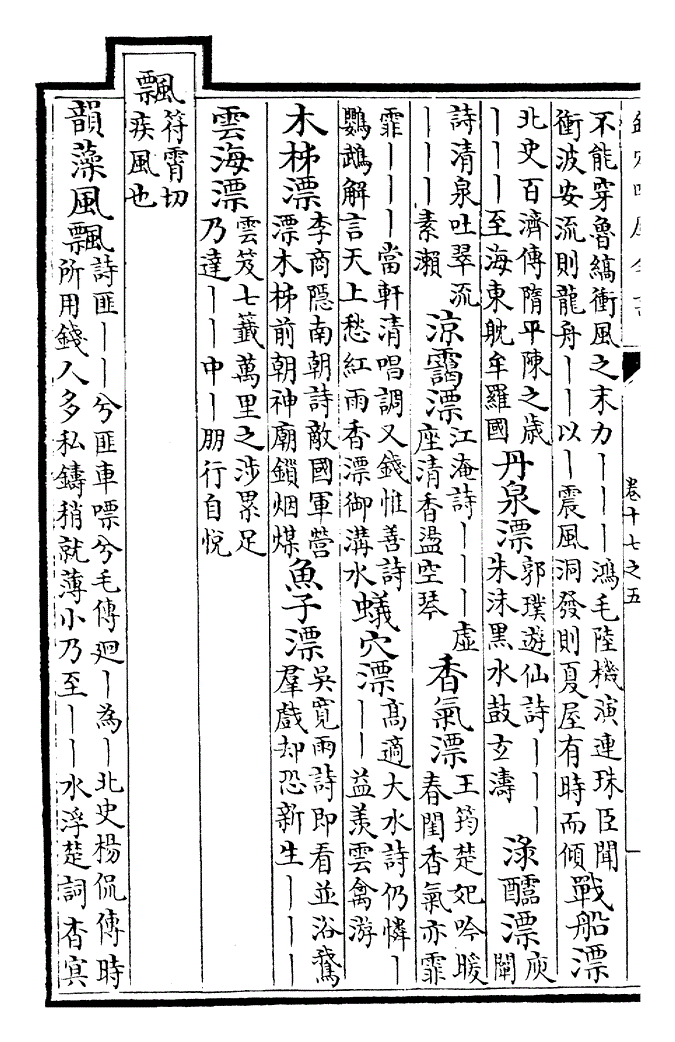 欽定四庫全書 卷十七之五
不能穿魯縞衝風之末力丨丨丨鴻毛陸機演連珠臣聞
衝波安流則龍舟丨丨以丨震風洞發則夏屋有時而傾
戰船漂
北史百濟傳隋平陳之歲
丨丨丨至海東䑏牟羅國
丹泉漂
郭璞遊仙詩丨丨丨
朱沫黑水鼓玄濤
淥醽漂
庾
闡
詩清泉吐翠流
丨丨丨素瀨
涼靄漂
江淹詩丨丨丨虛
座清香盪空琴
香氣漂
王筠楚妃吟暖
春閨香氣亦霏
霏丨丨丨當軒清唱調又錢惟善詩
鸚鵡解言天上愁紅雨香漂御溝水
蟻穴漂
高適大水詩仍憐丨
丨丨益羨雲禽游
木柹漂
李商隱南朝詩敵國軍營
漂木柹前朝神廟鎖烟煤
魚子漂
吳寬雨詩即看並浴鵞
羣戲却恐新生丨丨丨
雲海漂
雲笈七籤萬里之涉累足
乃達丨丨中丨朋行自悅
飄
符霄切
疾風也
韻藻風飄
詩匪丨丨兮匪車嘌兮毛傳廻丨為丨北史楊侃傳時
所用錢人多私鑄稍就薄小乃至丨丨水浮楚詞杳冥